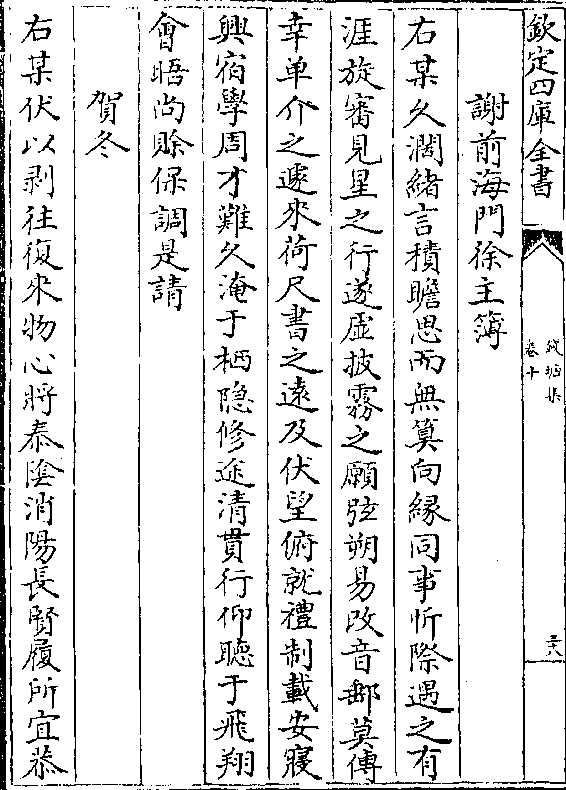 欽定四庫全書
錢塘集
卷十
三六
謝前海門徐主簿
右某久濶緒言積瞻思而無筭向縁同事忻際遇之有
涯旋審見星之行遂虚披霧之願弦朔易改音郵莫傳
幸单介之遽來荷尺書之逺及伏望俯就禮制載安寢
興宿學周才難久淹于栖隐修途清貫行仰聴于飛翔
會晤尚賖保調是請
賀冬
右某伏以剥往復來物心將泰陰消陽長賢履所宜恭